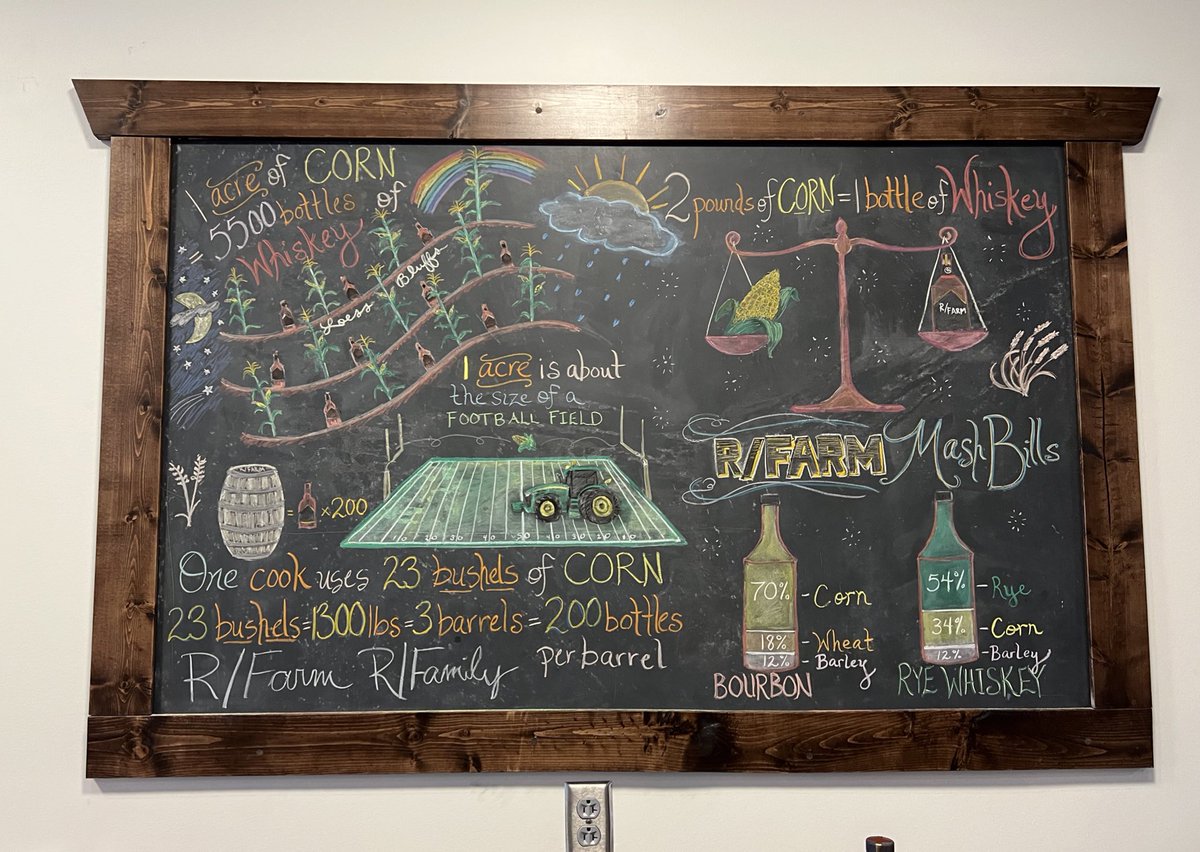 1 acre of CORN
5500 bottles of
Whiskey
Loess Bluffs
2 pounds of CORN = 1 bottle of Whiskey
R/FARM
1 acre is about
the size of a
FOOTBALL FIELD
R/FARM
= ×200
One cook uses 23 bushels of CORN
23 bushels = 1300 lbs = 3 barrels = 200 bottles
per barrel
R/Farm R/Family
R/FARM Mash Bills
70% - Corn
18% - Wheat
12% - Barley
BOURBON
54% - Rye
34% - Corn
12% - Barley
RYE WHISKEY